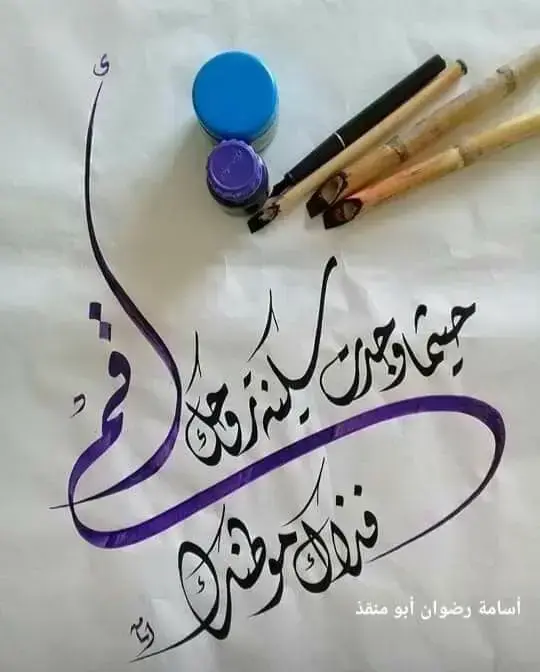 حيثما وجدت سكينة روحك
أقم
فذاك موطنك
أسامة رضوان أبو منقذ